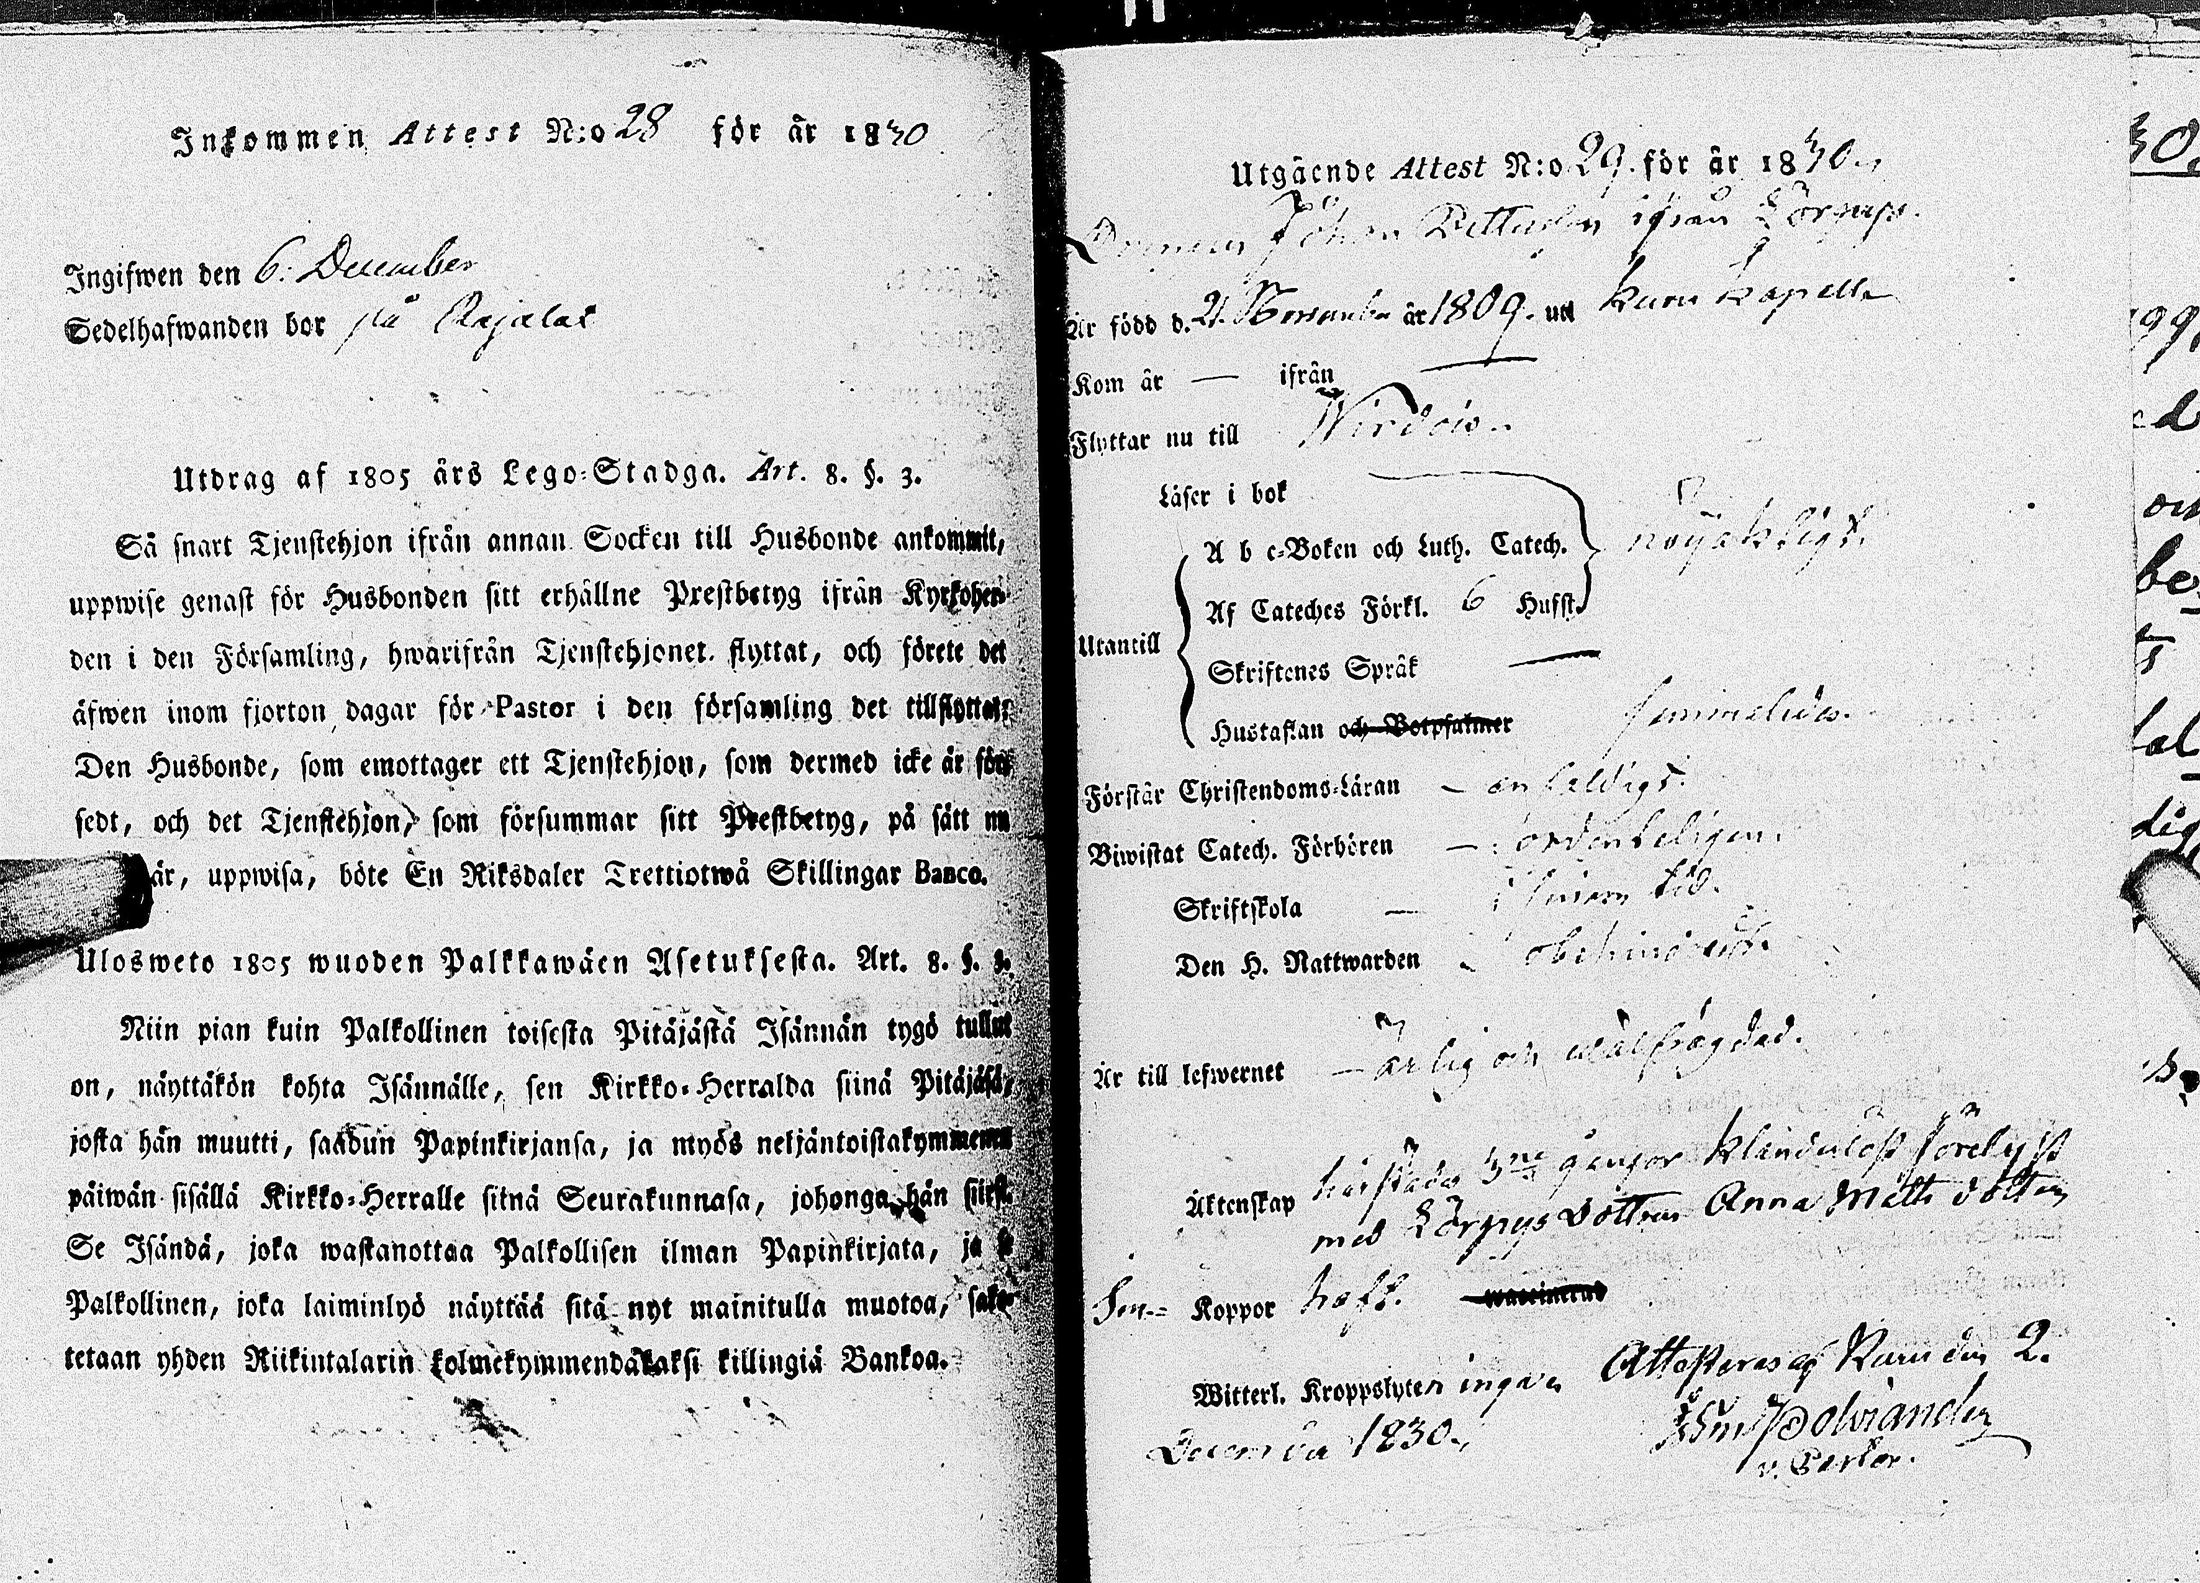 Inkommen Attest N:o 28 för år 1830
Ingifwen den 6. December
Sedelhafwanden bor på Rajalax
Utdrag af 1805 års Lego-Stadga. Art. 8. §. 3.
Så snart Tjenstehjon ifrån annan Socken till Husbonde ankommit,
uppwise genast för Husbonden sitt erhållne Prestbetyg ifrån Kyrkoher-
den i den Församling, hwarifrån Tjenstehjonet flyttat, och förete det
äfwen inom fjorton dagar för Pastor i den församling det tillflyttat.
Den Husbonde, som emottager ett Tjenstehjon, som dermed icke är för-
sedt, och det Tjenstehjon, som försummar sitt Prestbetyg, på sätt nu
är, uppwisa, böte En Riksdaler Trettiotwå Skillingar Banco.
Ulosweto 1805 wuoden Palkkawäen Asetuksesta. Art. 8. §. 3.
Niin pian kuin Palkollinen toisesta Pitäjästä Isännän tygö tullut
on, näyttäkön kohta Isännälle, sen Kirkko-Herralda siinä Pitäjäsä,
josta hän muutti, saadun Papinkirjansa, ja myös neljäntoistakymmenen
päiwän sisällä Kirkko-Herralle siinä Seurakunnasa, johonga hän siirst.
Se Isändä, joka wastanottaa Palkollisen ilman Papinkirjata, ja se
Palkollinen, joka laiminlyö näyttää sitä nyt mainitulla muotoa, sako-
tetaan yhden Riikintalarin kolmekymmendäkaksi killingiä Bankoa.
Utgående Attest N:o 29. för år 1830.
Drengen Johan Pettersson ifrån Lörpys.
Är född d. 21. November år 1809. uti Kuru Kapell
Kom år — ifrån —
Flyttar nu till Wirdois.
Läser i bok
A b c-Boken och Luth. Catech. nöjaktigt.
Af Cateches Förkl. 6 Hufst.
Utantill
Skriftenes Språk —
Hustaflan och Botpsalmer semmeledes.
Förstår Christendoms-Läran — enfaldigt.
Biwistat Catech. Förhören — ordenteligen.
Skriftskola — i sinom tid.
Den H. Nattwarden obehindrad.
Är till lefwernet — ärlig och wälfrägdad.
Äktenskap härstädes 3ne gånger klanderlöst förelyst
med Lörpys dottren Anna Matts dotter
Sm- Koppor haft.
Witterl. Kroppslyten inga. Attesteras af Kuru den 2.
December 1830.
v. Pastor.